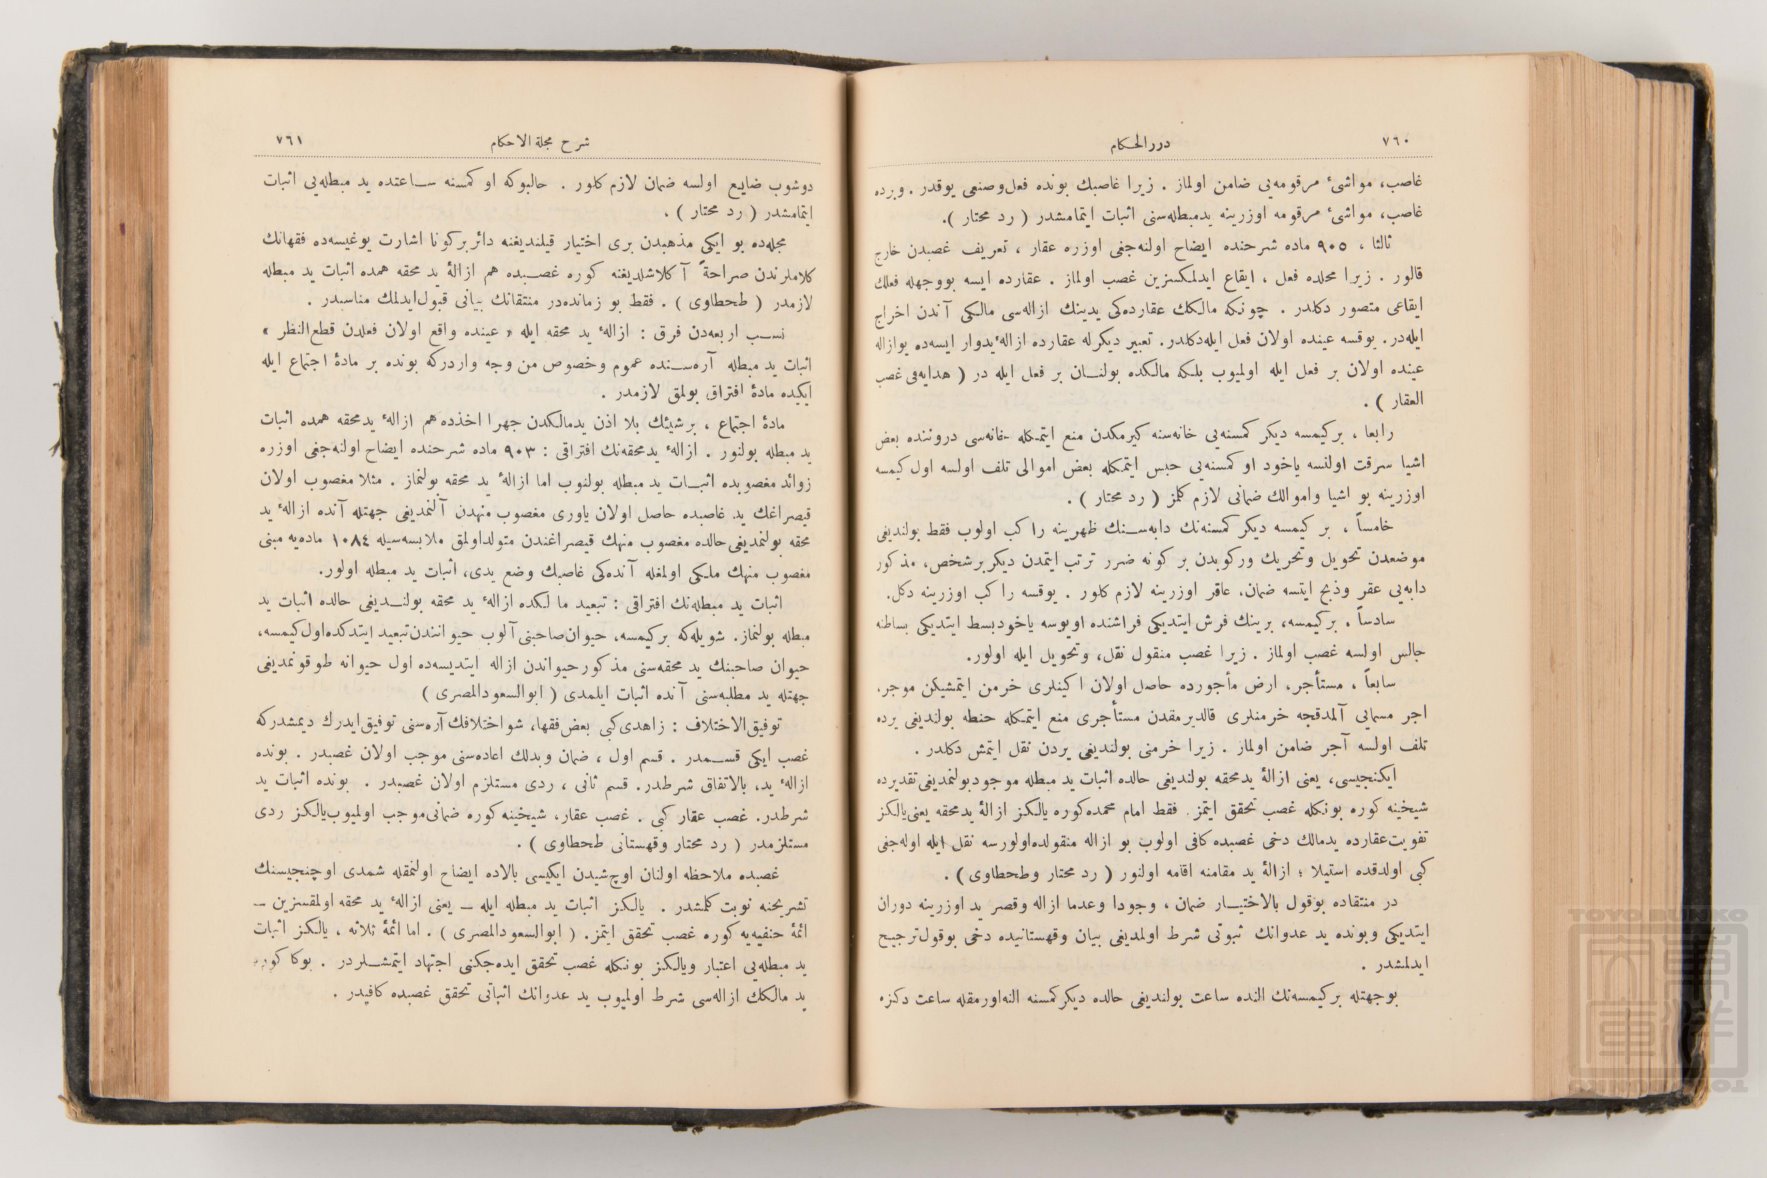 ٧٦٠
دررالحكام
غاصب، مواشئ مرقومه‌یی ضامن اولماز . زیرا غاصبك بونده فعل‌وصنعی یوقدر . وبرده
غاصب، مواشئ مرقومه اوزرینه یدمبطله‌سنی اثبات ایتمامشدر ( رد محتار ).
ثالثا ، ٩٠٥ ماده شرحنده ایضاح اولنه‌جغی اوزره عقار ، تعریف غصبدن خارج
قالور . زیرا محلده فعل ، ایقاع ایدلمكسزین غصب اولماز . عقارده ایسه بووجهله فعلك
ایقاعی متصور دكلدر . چونكه مالكك عقارده‌كی یدینك ازاله‌سی مالكی آندن اخراج
ایله‌در. یوقسه عینده اولان فعل ایله‌دكلدر. تعبیر دیكرله عقارده ازالۀیدوار ایسه‌ده بوازاله
عینده اولان بر فعل ایله اولمیوب بلكه مالكده بولنـان بر فعل ایله در ( هدایه‌فی غصب
العقار ) .
رابعا ، بركیمسه دیكر كمسنه‌یی خانه‌سنه كیرمكدن منع ایتمكله خانه‌سی دروننده بعض
اشیا سرقت اولنسه یاخود او كمسنه‌یی حبس ایتمكله بعض اموالی تلف اولسه اول كیمسه
اوزرینه بو اشیا واموالك ضمانی لازم كلمز ( رد محتار ) .
خامساً ، بر كیمسه دیكر كمسنه‌نك دابه‌سـنك ظهرینه را كب اولوب فقط بولندیغی
موضعدن تحویل وتحریك وركوبدن بر كونه ضرر ترتب ایتمدن دیكربرشخص، مذكور
دابه‌یی عقر وذبح ایتسه ضمان، عاقر اوزرینه لازم كلور . یوقسه را كب اوزرینه دكل.
سادساً ، بركیمسه، برینك فرش ایتدیكی فراشنده اویوسه یاخودبسط ایتدیكی بساطنه
جالس اولسه غصب اولماز . زیرا غصب منقول نقل، وتحویل ایله اولور.
سابعاً ، مستأجر، ارض مأجورده حاصل اولان اكینلری خرمن ایتمشیكن موجر،
اجر مسمایی آلمدقجه خرمنلری قالدیرمقدن مستأجری منع ایتمكله حنطه بولندیغی یرده
تلف اولسه آجر ضامن اولماز . زیرا خرمنی بولندیغی یردن نقل ایتمش دكلدر .
ایكنجیسی، یعنی ازالۀ یدمحقه بولندیغی حالده اثبات ید مبطله موجودبولنمدیغی تقدیرده
شیخینه كوره بونكله غصب تحقق ایتمز. فقط امام محمده‌كوره یالكز ازالۀ یدمحقه یعنی‌یالكز
تفویت‌عقارده یدمالك دخی غصبده كافی اولوب بو ازاله منقولده‌اولورسه نقل ایله اوله‌جغی
كبی اولدقده استیلا ؛ ازالۀ ید مقامنه اقامه اولنور ( رد محتار وطحطاوی ) .
در منتقاده بوقول بالاختیـار ضمان ، وجودا وعدما ازاله وقصر ید اوزرینه دوران
ایتدیكی وبونده ید عدوانك ثبوتی شرط اولمدیغی بیان وقهستانیده دخی بوقول‌ترجیح
ایدلمشدر .
بوجهتله بركیمسه‌نك النده ساعت بولندیغی حالده دیكركمسنه النه‌اورمقله ساعت دكزه
شرح مجلة الاحكام
٧٦١
دوشوب ضایع اولسه ضمان لازم كلور . حالبوكه او كمسنه سـاعتده ید مبطله‌یی اثبات
ایتمامشدر ( رد محتار ) .
مجله‌ده بو ایكی مذهبدن بری اختیار قیلندیغنه دائربركونا اشارت یوغیسه‌ده فقهانك
كلاملرندن صراحةً آكلاشلدیغنه كوره غصـبده هم ازالۀ ید محقه همده اثبات ید مبطله
لازمدر ( طحطاوی ) . فقط بو زمانده‌در منتقانك بیانی قبول‌ایدلمك مناسبدر .
نسـب اربعه‌دن فرق : ازالۀ ید محقه ایله « عینده واقع اولان فعلدن قطع‌النظر »
اثبات ید مبطله آره‌سـنده عموم وخصوص من وجه واردركه بونده بر مادۀ اجتماع ایله
ایكیده مادۀ افتراق بولمق لازمدر .
مادۀ اجتماع ، برشیئك بلا اذن یدمالكدن جهرا اخذده‌هم ازالۀ یدمحقه همده اثبات
ید مبطله بولنور . ازالۀ یدمحقه‌نك افتراقی : ٩٠٣ ماده شرحنده ایضاح اولنه‌جغی اوزره
زوائد مغصوبده اثبـات ید مبطله بولنوب اما ازالۀ ید محقه بولنماز . مثلا مغصوب اولان
قیصراغك ید غاصبده حاصل اولان یاوری مغصوب منهدن آلنمدیغی جهتله آنده ازالۀ ید
محقه بولنمدیغی حالده مغصوب منهك قیصراغندن متولداولمق ملابسه‌سیله ١٠٨٤ ماده‌یه مبنی
مغصوب منهك ملكی اولمغله آنده‌كی غاصبك وضع یدی، اثبات ید مبطله اولور.
اثبات ید مبطله‌نك افتراقی : تبعید ما لكده ازالۀ ید محقه بولنـدیغی حالده اثبات ید
مبطله بولنماز. شویله‌كه بركیمسه، حیوان‌صاحبنی آلوب حیوانندن‌تبعید ایتدكده‌اول‌كیمسه،
حیوان صاحبنك ید محقه‌سنی مذكورحیواندن ازاله ایتدیسه‌ده اول حیوانه طوقونمدیغی
جهتله ید مطلبه‌سنی آنده اثبات ایلمدی ( ابوالسعودالمصری )
توفیق‌الاختلاف : زاهدی‌كبی بعض‌فقها، شواختلافك آره‌سنی توفیق‌ایدرك دیمشدركه
غصب ایكی قسـمدر . قسم اول ، ضمان وبدلك اعاده‌سنی موجب اولان غصبدر . بونده
ازالۀ ید، بالاتفاق شرطدر. قسم ثانی ، ردی مستلزم اولان غصبدر . بونده اثبات ید
شرطدر. غصب عقار كبی . غصب عقار، شیخینه كوره ضمانی‌موجب اولمیوب‌یالكز ردی
مستلزمدر ( رد محتار وقهستانی طحطاوی ) .
غصبده ملاحظه اولنان اوچ‌شیدن ایكیسی بالاده ایضاح اولنمقله شمدی اوچنجیسنك
تشریحنه نوبت كلمشدر . یالكز اثبات ید مبطله ایله ــ یعنی ازالۀ ید محقه اولمقسزین ــ
ائمۀ حنفیه‌یه كوره غصب تحقق ایتمز. ( ابوالسعودالمصری ) . اما ائمۀ ثلاثه ، یالكز اثبات
ید مبطله‌یی اعتبار ویالكز بونكله غصب تحقق ایده‌جكنی اجتهاد ایتمشـلردر . بوكا كوره
ید مالكك ازاله‌سی شرط اولمیوب ید عدوانك اثباتی تحقق غصبده كافیدر .
TOYO BUNKO